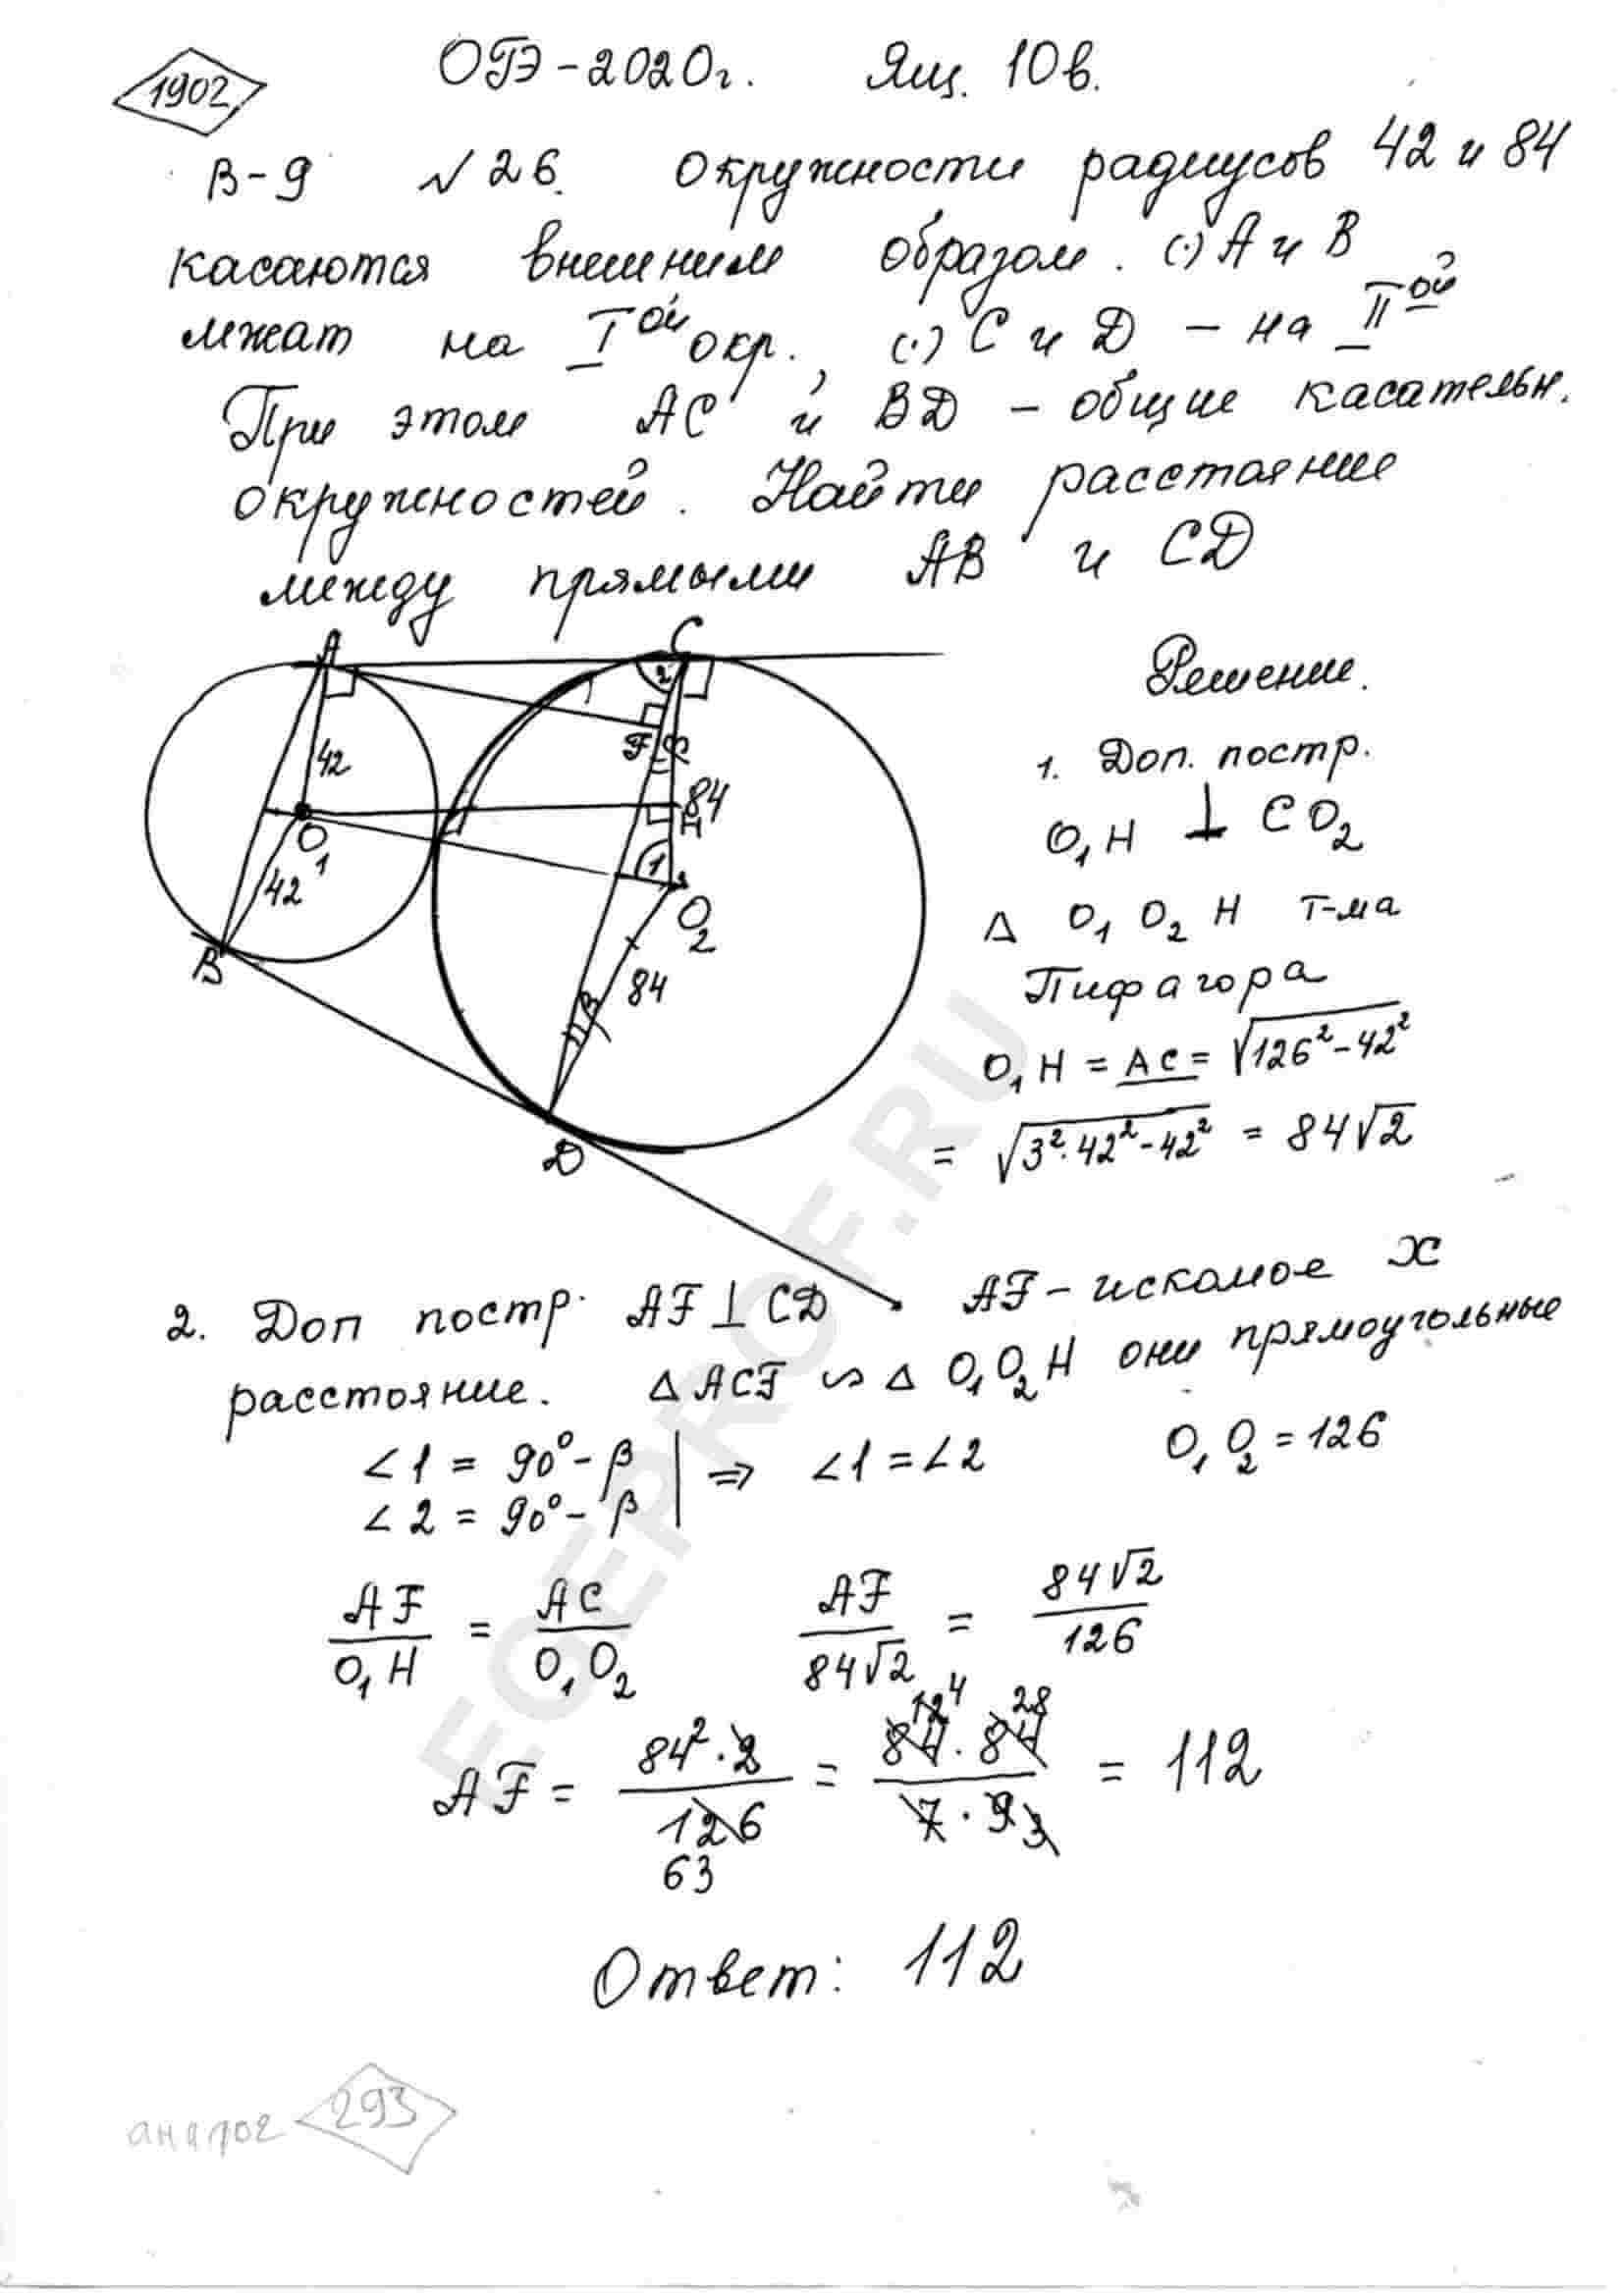 1902
ОГЭ-2020г. Ящ. 10в.
В-9 №26. Окружности радиусов 42 и 84
касаются внешним образом. (·) А и В
лежат на I ой окр., (·) С и D – на II ой
При этом АС и BD – общие касательн.
окружностей. Найти расстояние
между прямыми АВ и CD
A
C
2
42
F
β
84
H
O1
1
42
O2
B
84
β
D
Решение.
1. Доп. постр.
O1H ⊥ CO2
Δ O1O2H т-ма
Пифагора
O1H = AC = √(126² - 42²)
= √(3²·42² - 42²) = 84√2
2. Доп постр. AF ⊥ CD AF – искомое х
расстояние. Δ ACF ∽ Δ O1O2H они прямоугольные
∠1 = 90° - β | ⇒ ∠1 = ∠2 O1O2 = 126
∠2 = 90° - β
AF/O1H = AC/O1O2 AF/84√2 = 84√2/126
12 4 28
AF = 84²·2/126 = 84·84/7·9 3 = 112
63
Ответ: 112
аналог 293
EGEPROF.RU